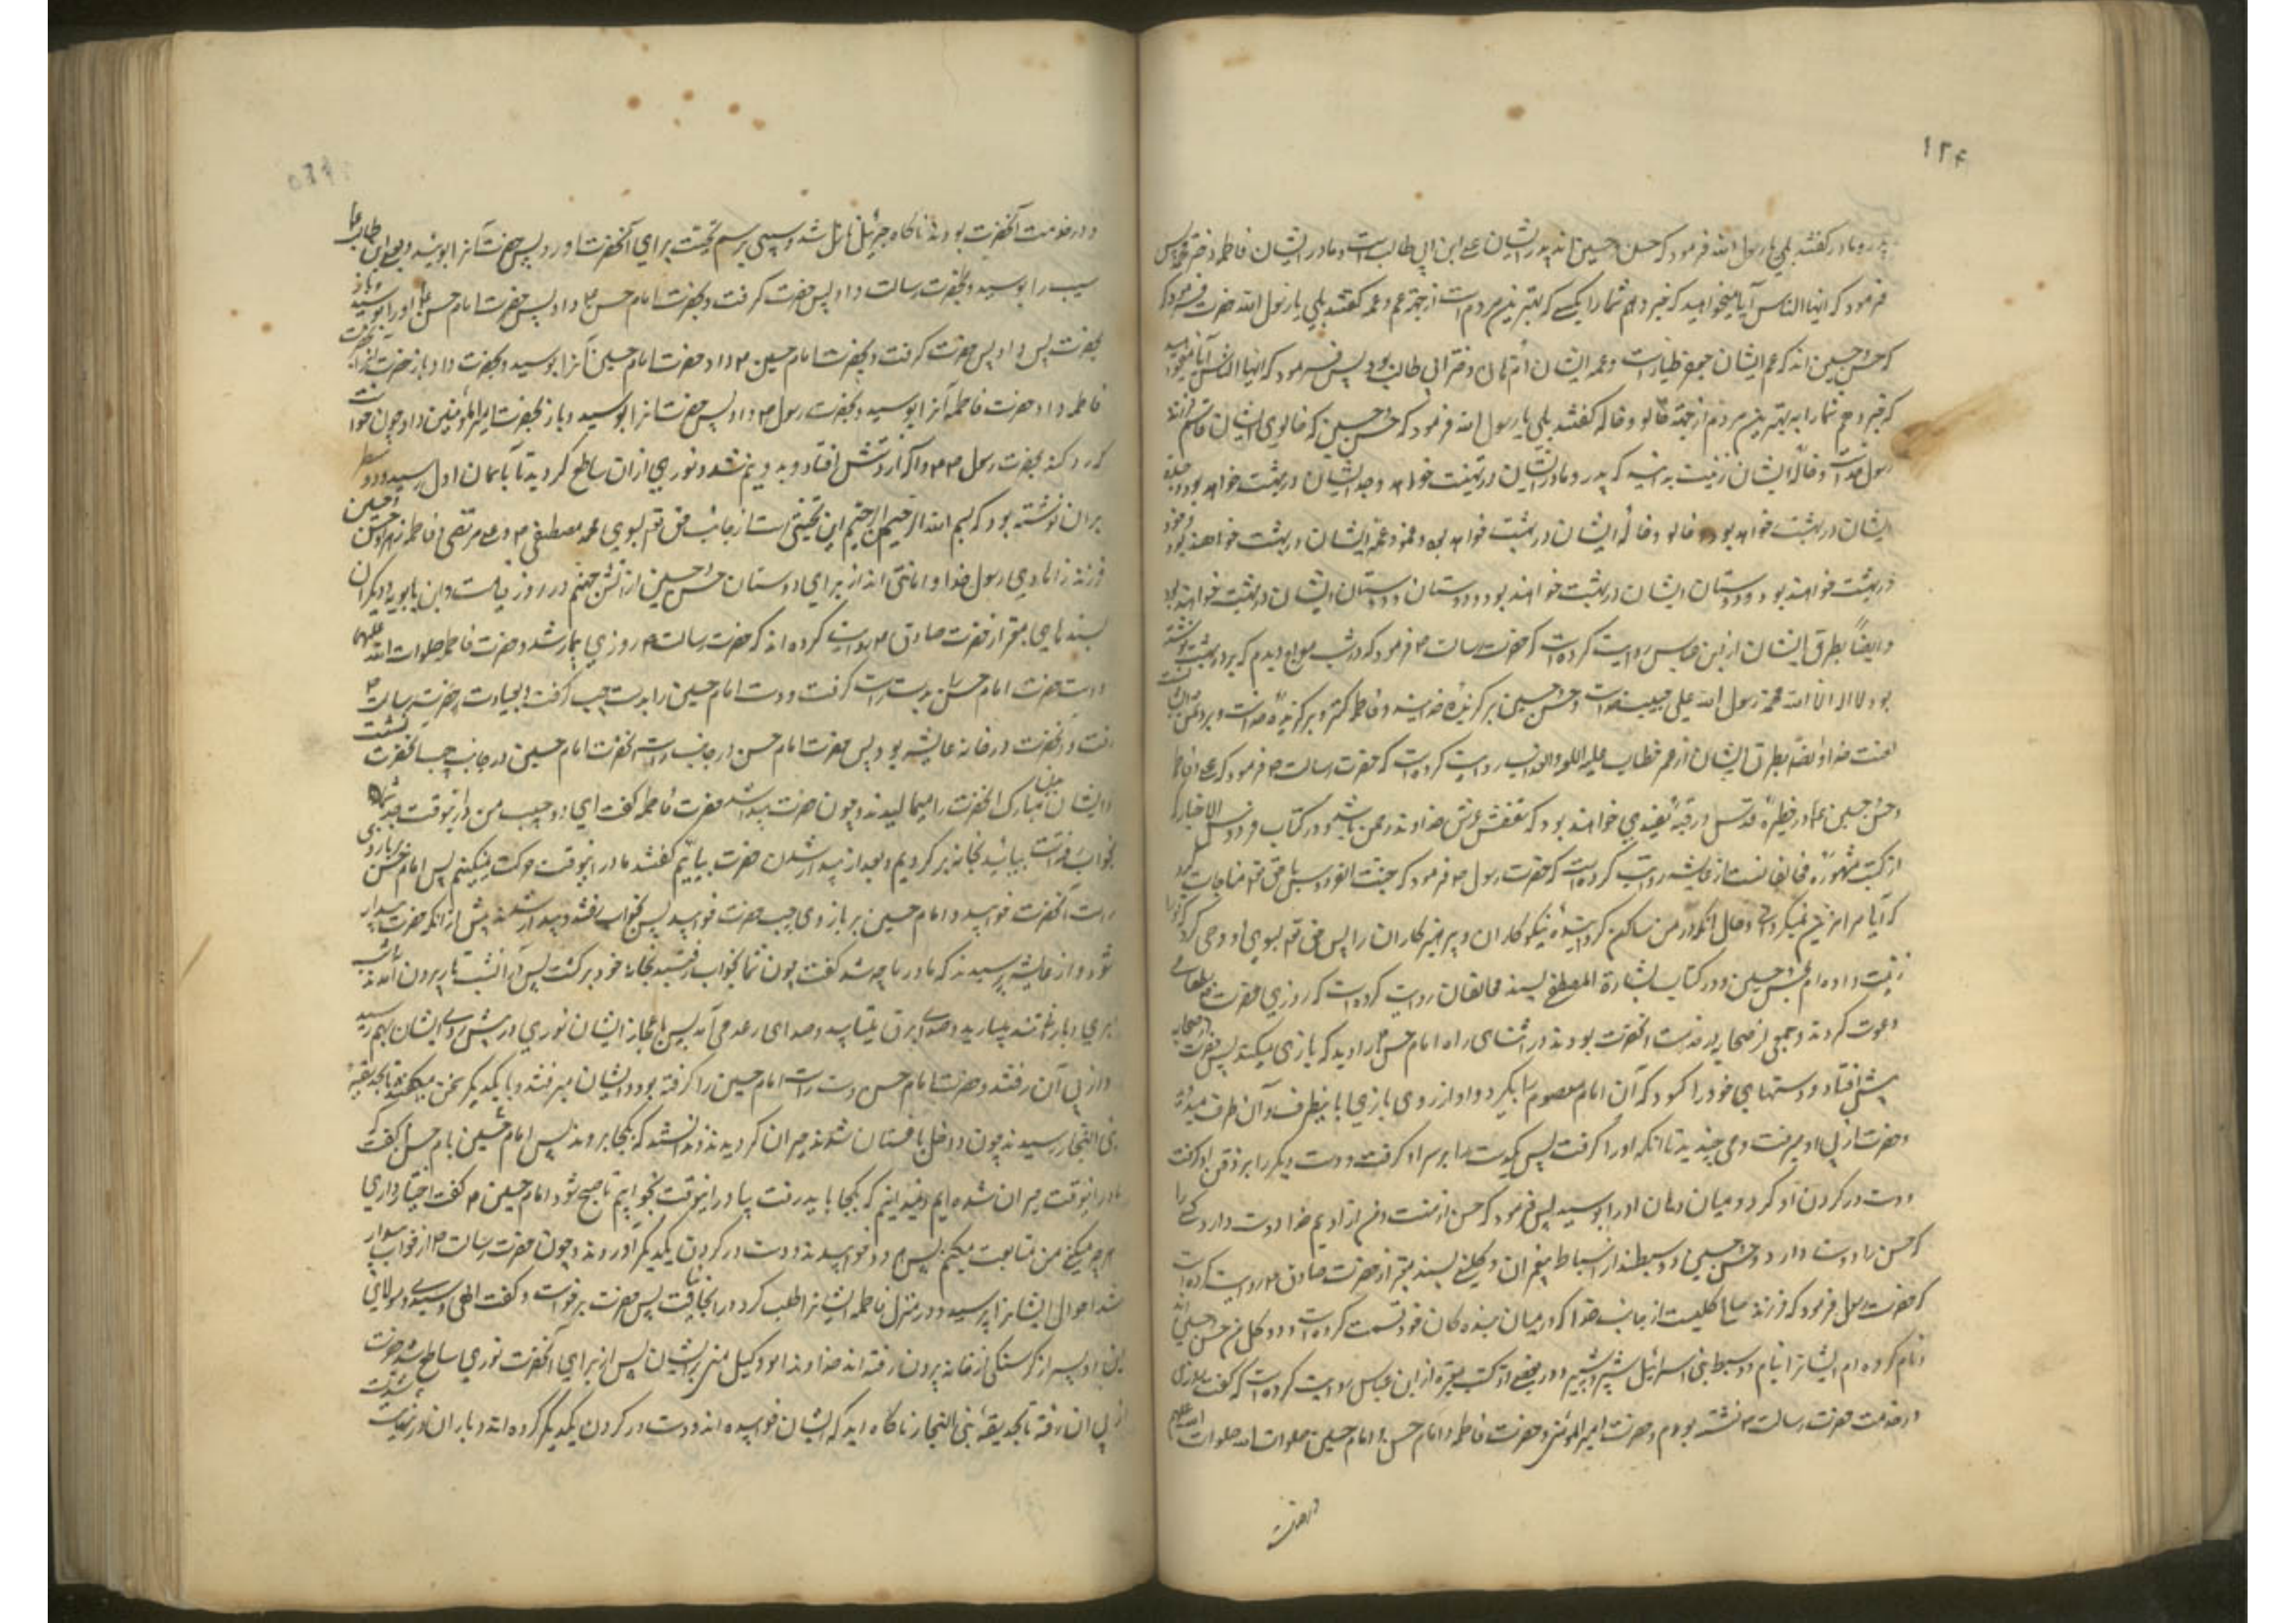 ۱۲۴
پدر و مادر گفتند بلي يا رسول الله فرمود که حسن و حسين اند پدر ايشان علي ابن ابي طالب است و مادر ايشان فاطمه دختر محمد پس
فرمود که ايها الناس آيا ميخواهيد که خبر دهم شما را بکسي که بهترين مردم است از جهة عم و عمه گفتند بلي يا رسول الله حضرت فرمود که
که حسن و حسين اند که عم ايشان جعفر طيار است و عمه ايشان ام هاني دختر ابي طالب بود پس فرمود که ايها الناس آيا ميخواهيد
که خبر دهم شما را به بهترين مردم از جهة خالو و خاله گفتند بلي يا رسول الله فرمود که حسن و حسين که خالوي ايشان قاسم فرزند
رسول خداست و خاله ايشان زينب بدرستيکه پدر و مادر ايشان در بهشت خواهند و جد ايشان در بهشت خواهد بود و جده
ايشان در بهشت خواهد بود و خالو و خاله ايشان در بهشت خواهند بود و عم و عمه ايشان در بهشت خواهند بود و خود
در بهشت خواهند بود و دوستان ايشان در بهشت خواهند بود و دوستان دوستان ايشان در بهشت خواهند بود
و ايضاً بطرق ايشان از ابن عباس روايت کرده است که حضرت رسالت ۳ فرمود که در شب معراج ديدم که بر در بهشت نوشته
بود لا اله الا الله محمد رسول الله علي حبيب خداست و حسن و حسين برگزيده خدايند و فاطمه کنيز و برگزيده خداست و بر دشمن ايشان
لعنت خدا و ايضا بطرق ايشان از عمر خطاب عليه اللعنه والعذاب روايت کرده است که حضرت رسالت ۳ فرمود که علي و فاطمه
و حسن و حسين ۴ در حظيره قدس در قبه سفيدي خواهند بود که سقفش عرش خداوند رحمن باشد و در کتاب فردوس الاخبار که
از کتب مشهوره مخالفانست از عايشه روايت کرده است که حضرت رسول ۳ فرمود که جنت الفردوس با حق تع مناجات کرد
که آيا مرا زينت نميکردي و حال آنکه در من ساکن گردانيده نيکوکاران و پرهيزکاران را پس حق تع بسوي او وحي کرد که ترا
زينت داده ام بحسن و حسين و در کتاب بشارة المصطفي بسند مخالفان روايت کرده است که روزي حضرت ۳ را بطعامي
دعوت کردند و جمعي از صحابه در خدمت آنحضرت بودند در اثناي راه امام حسن ۴ را ديد که بازي ميکند پس حضرت از صحابه
پيش افتاد و دستهاي خود را گشود که آن امام معصوم را بگيرد و او از روي بازي باينطرف و آن طرف ميدويد
و حضرت از پي او ميرفت و مي خنديد تا آنکه او را گرفت پس يکدست را بر سر او گرفت و دست ديگر را بر ذقن او گرفت
و دست در گردن او کرد و ميان دهان او را بوسيد پس فرمود که حسن از منست و من از اويم خدا دوست دارد کسي را
که حسن را دوست دارد و حسن و حسين دو سبطند از اسباط پيغمبران و کليني بسند معتبر از حضرت صادق ۴ روايت کرده است
که حضرت رسول فرمود که فرزند صالح گليست از جانب خدا که در ميان بندگان خود قسمت کرده است و دو گل من حسن و حسين اند
و نام کرده ام ايشانرا بنام دو سبط بني اسرائيل شبر و شبير و در بعضي از کتب معتبره از ابن عباس روايت کرده است که گفت روزي
در خدمت حضرت رسالت ۳ نشسته بودم و حضرت امير المؤمنين و حضرت فاطمه و امام حسن و امام حسين صلوات الله
در خدمت
و در خدمت آنحضرت بودند ناگاه جبرئيل نازل شد و سيبي برسم تحيت براي آنحضرت آورد پس حضرت آنرا بوئيد و بعلي ابن ابي طالب
سيب را بوسيد و بحضرت رسالت داد پس حضرت گرفت و بحضرت امام حسن ۴ داد پس حضرت امام حسن ۴ او را بوسيد و باز
بحضرت پس داد پس حضرت گرفت و بحضرت امام حسين ۴ داد و حضرت امام حسين آنرا بوسيد و بحضرت داد و باز حضرت آنرا بحضرت
فاطمه داد حضرت فاطمه آنرا بوسيد و بحضرت رسول ۳ داد پس حضرت آنرا بوسيد و باز بحضرت امير المؤمنين داد و چون خواست
که رد کند بحضرت رسول ۳ از دستش افتاد و بدو نيم شد و نوري از آن ساطع گرديد تا بآسمان اول رسيد و دو سطر
بر آن نوشته بود که بسم الله الرحمن الرحيم اين تحيتي است از جانب حق تع بسوي محمد مصطفي ۳ و علي مرتضي و فاطمه زهرا و حسن و حسين
فرزندزادهاي رسول خدا و امانتي اند از براي دوستان حسن و حسين از آتش جهنم در روز قيامت و ابن بابويه و ديگران
بسندهاي معتبر از حضرت صادق ۴ روايت کرده اند که حضرت رسالت ۳ روزي بيمار شد و حضرت فاطمه صلوات الله عليهما
دست حضرت امام حسن را بدست راست گرفت و دست امام حسين را بدست چپ گرفت و بعيادت حضرت رسالت ۳
رفت و آنحضرت در خانه عايشه بود پس حضرت امام حسن در جانب راست آنحضرت امام حسين در جانب چپ آنحضرت نشست
و ايشان بدن مبارک آنحضرت را ميماليدند و چون حضرت بيدار نشد حضرت فاطمه گفت اي دو حبيب من در اينوقت جد شما
بخواب رفته است بيائيد بخانه برگرديم و بعد از بيدار شدن حضرت بيائيم گفتند ما در اينوقت حرکت نميکنيم پس امام حسن بر بازوي
راست آنحضرت خوابيد و امام حسين بر بازوي چپ حضرت خوابيد پس بخواب رفتند و بيدار شدند پيش از آنکه حضرت بيدار
شود و از عايشه پرسيدند که مادر ما چه شد گفت چون شما بخواب رفتيد بخانه خود برگشت پس در آن شب تار بيرون آمدند
ابري و باران تند ميباريد و صداي برق ميتابيد و صداي رعد مي آمد پس باعجاز ايشان نوري در پيش روي ايشان بهم رسيد
و از پي آن رفتند و حضرت امام حسن دست راست امام حسين را گرفته بود و ايشان ميرفتند و با يکديگر سخن ميگفتند تا بحديقه
بني النجار رسيدند چون داخل باغستان شدند حيران گرديدند و ندانستند که بکجا بروند پس امام حسين بامام حسن گفت که
ما در اينوقت حيران شده ايم و نميدانيم که بکجا بايد رفت بيا در اينوقت بخوابيم تا صبح شود امام حسين ۴ گفت اختيار داري
هر چه ميکني من متابعت ميکنم پس هر دو خوابيدند و دست در گردن يکديگر آوردند و چون حضرت رسالت ۳ از خواب بيدار
شد احوال ايشانرا پرسيد و در منزل فاطمه ايشانرا طلب کرد و در آنجا نيافت پس حضرت برخواست و گفت الهي و سيدي و مولاي
اين دو پسر از گرسنگي از خانه بيرون رفته اند خداوندا تو وکيل مني بر ايشان پس از براي آنحضرت نوري ساطع شد حضرت
از پي آن رفته تا بحديقه بني النجار ناگاه ديد که ايشان خوابيده اند و دست در گردن يکديگر کرده اند و باران در نهايت شدت